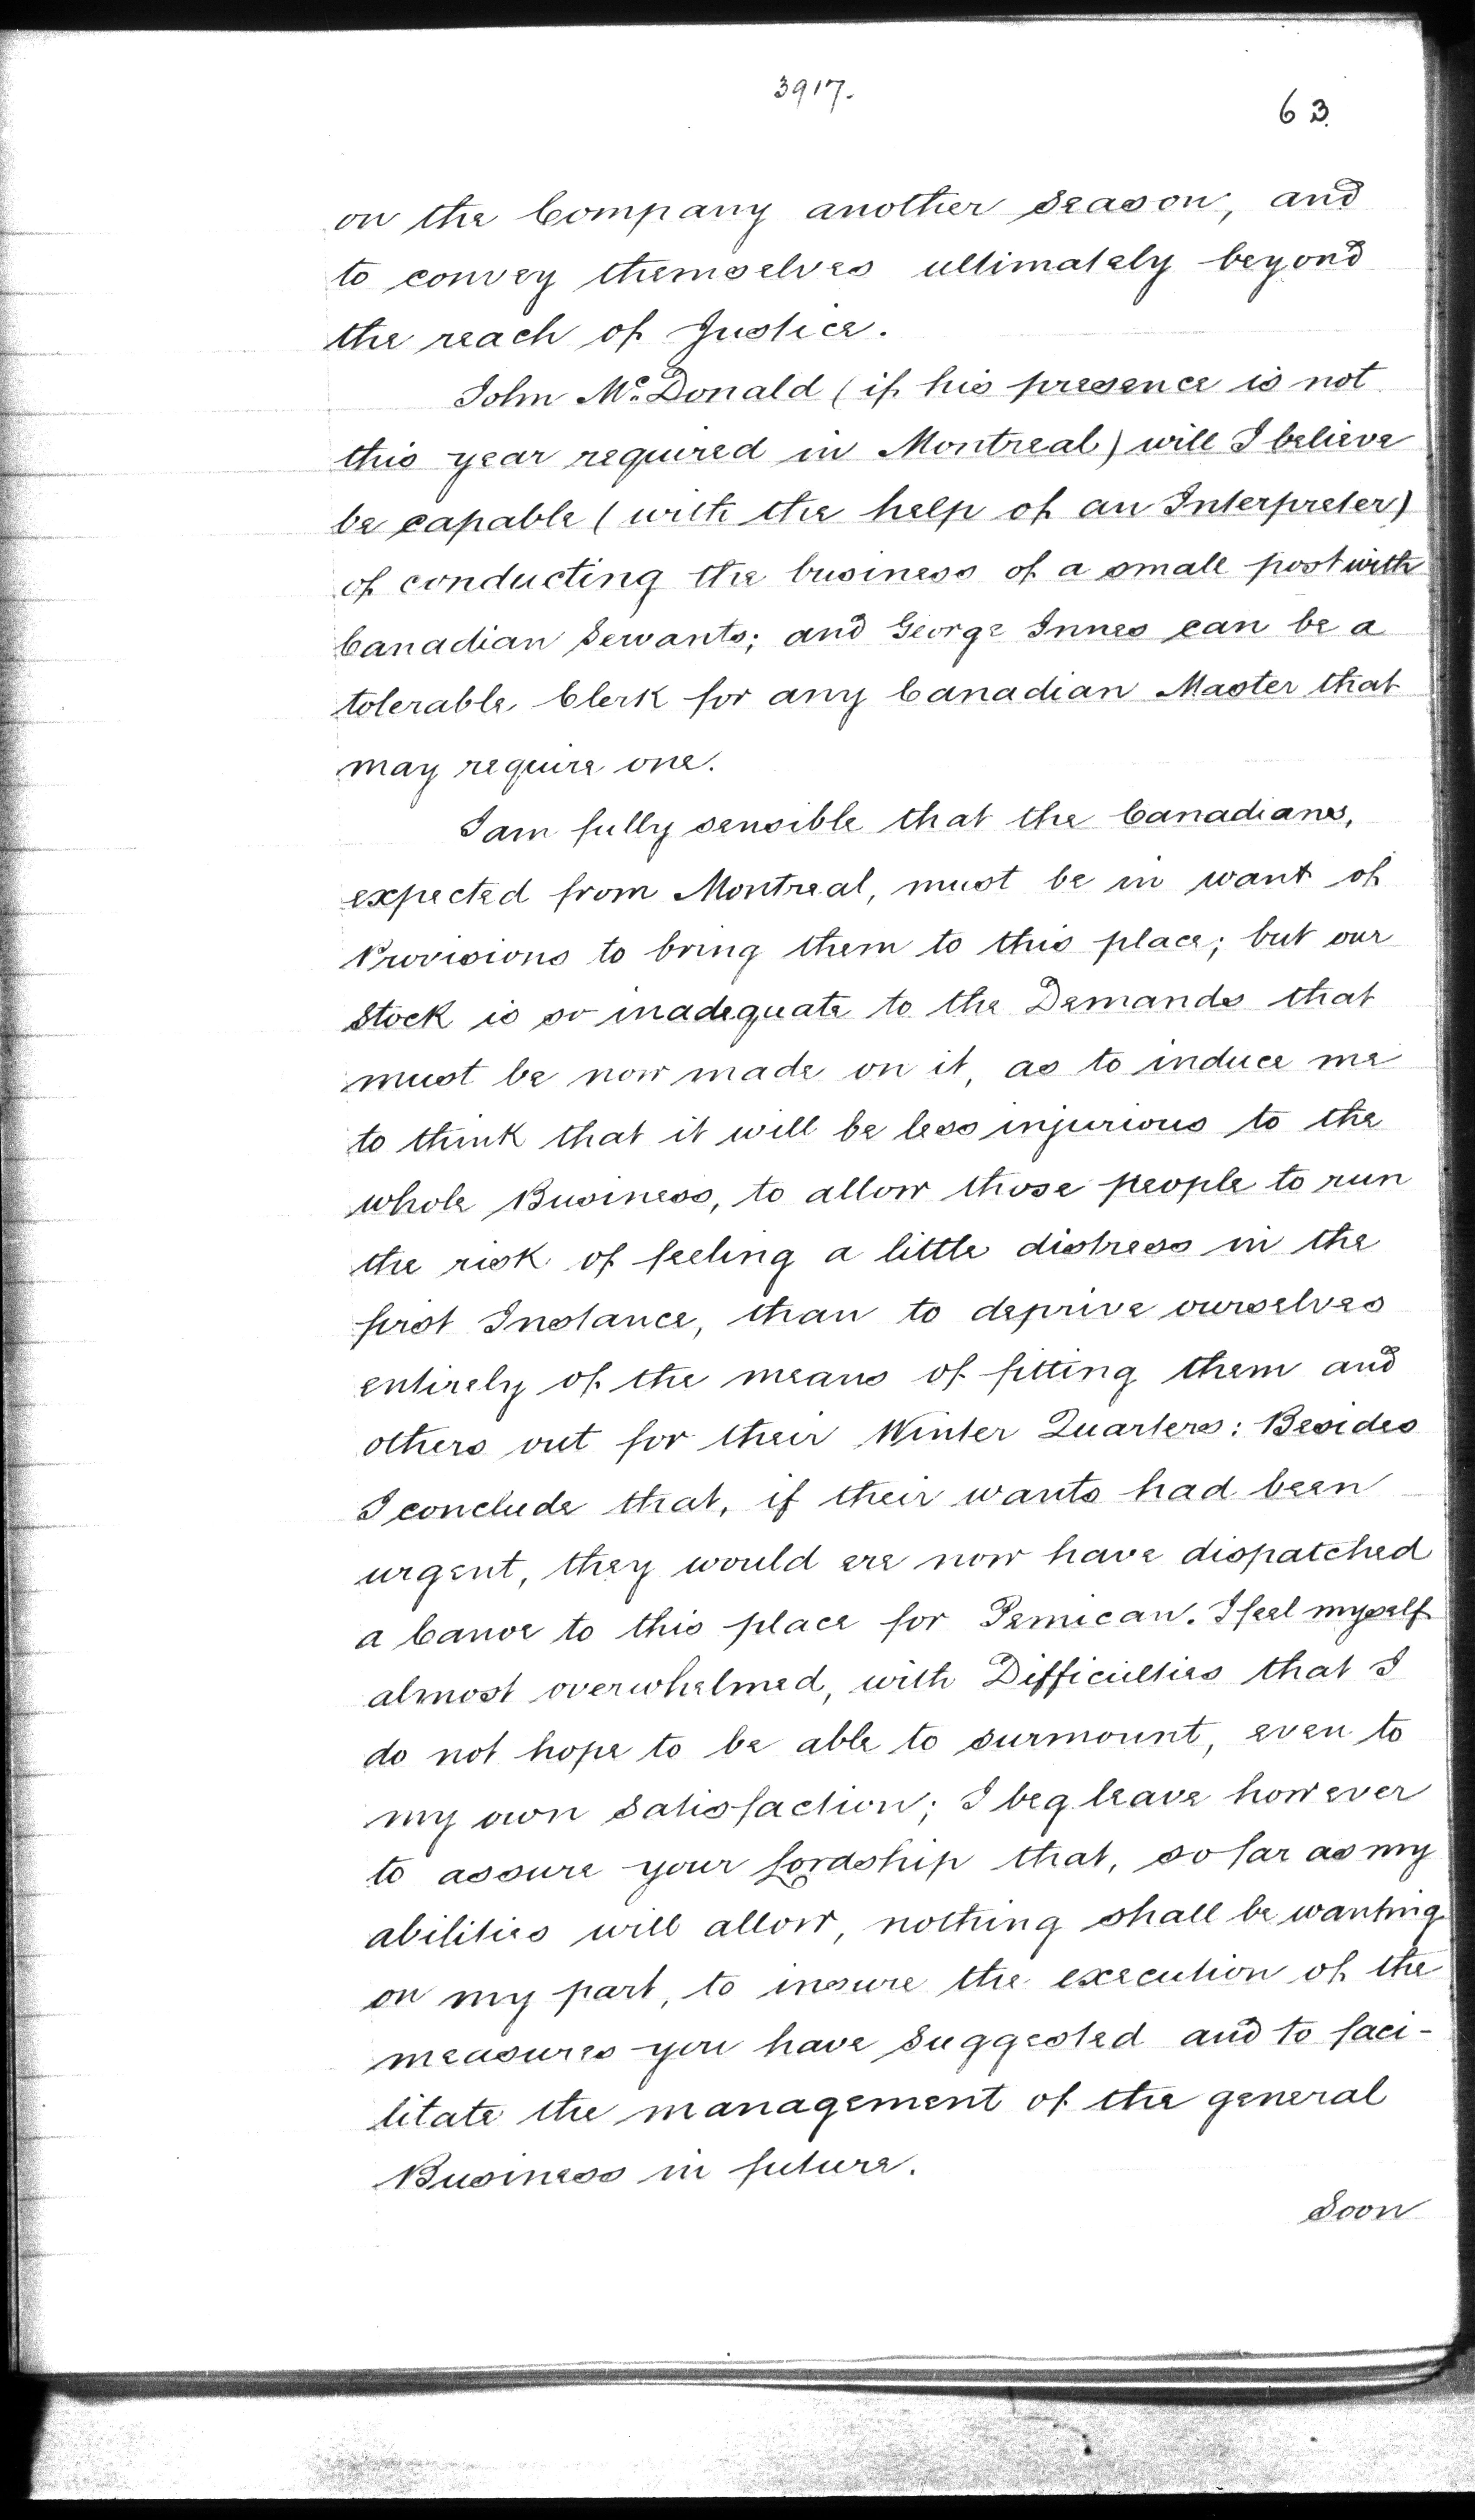 3917.
63.
on the Company another Season, and
to convey themselves ultimately beyond
the reach of Justice.
John Mc. Donald (if his presence is not
this year required in Montreal) will I believe
be capable (with the help of an Interpreter)
of conducting the business of a small post with
Canadian Servants; and George Innes can be a
tolerable Clerk for any Canadian Master that
may require one.
I am fully sensible that the Canadians,
expected from Montreal, must be in want of
Provisions to bring them to this place; but our
Stock is so inadequate to the Demands that
must be now made on it, as to induce me
to think that it will be less injurious to the
whole Business, to allow those people to run
the risk of feeling a little distress in the
first Instance, than to deprive ourselves
entirely of the means of fitting them and
others out for their Winter Quarters: Besides
I conclude that, if their wants had been
urgent, they would ere now have dispatched
a Canoe to this place for Pemican. I feel myself
almost overwhelmed, with Difficulties that I
do not hope to be able to surmount, even to
my own Satisfaction; I beg leave however
to assure your Lordship that, so far as my
abilities will allow, nothing shall be wanting
on my part, to insure the execution of the
measures you have Suggested and to faci-
litate the management of the general
Business in future.
Soon